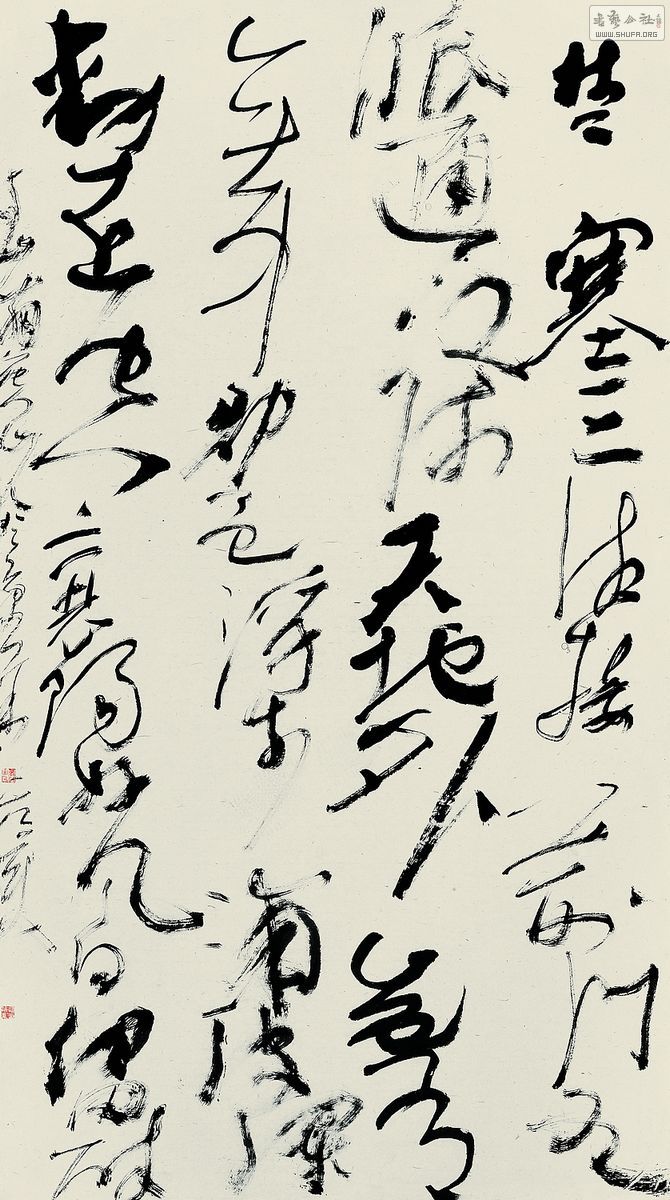 楚塞三湘接荆門九
派通江流天地外山色有
无中郡邑浮前浦波瀾
動遠空襄陽好風日留醉
与山翁
书艺公社
WWW.SHUFA.ORG